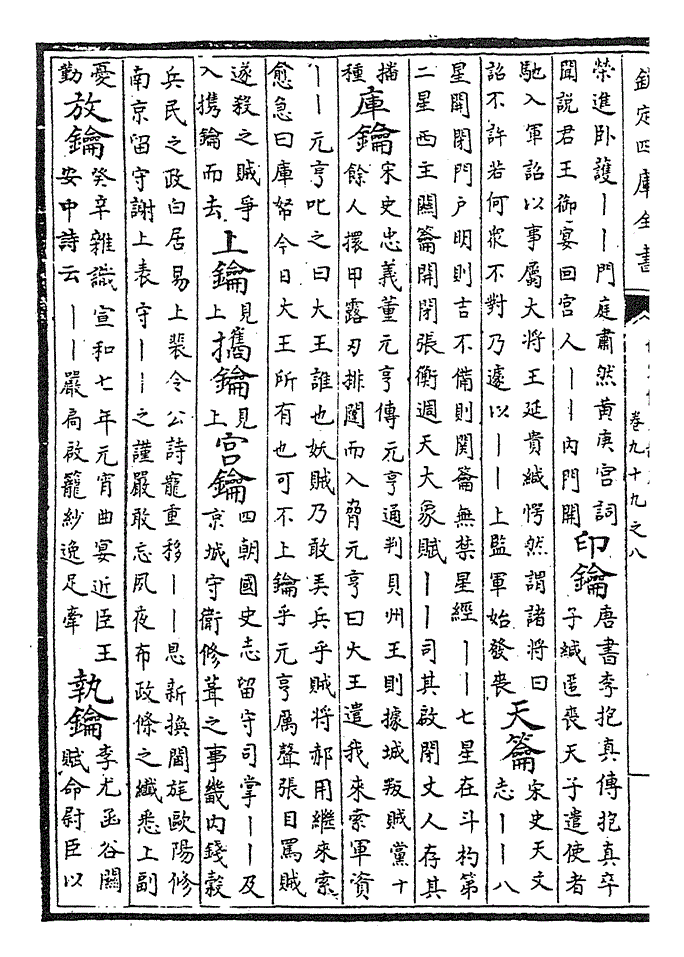 欽定四庫全書
卷九十九之八
榮進卧護丨丨門庭肅然黄庚宮詞
聞説君王御宴回宮人丨丨内門開
印鑰
唐書李抱真傳抱真卒
子緘匿喪天子遣使者
馳入軍詔以事屬大將王延貴緘愕然謂諸將曰
詔不許若何衆不對乃遽以丨丨上監軍始發喪
天籥
宋史天文
志丨丨八
星開閉門户明則吉不備則関籥無禁星經丨丨七星在斗杓第
二星西主關籥開閉張衡週天大象賦丨丨司其啟閉丈人存其
播
種
庫鑰
宋史忠義董元亨傳元亨通判貝州王則據城叛賊黨十
餘人擐甲露刃排闥而入脅元亨曰大王遣我來索軍資
丨丨元亨叱之曰大王誰也妖賊乃敢弄兵乎賊將郝用繼來索
愈急曰庫帑今日大王所有也可不上鑰乎元亨厲聲張目罵賊
遂殺之賊爭
入携鑰而去
上鑰
見
上
㩦鑰
見
上
宮鑰
四朝國史志留守司掌丨丨及
京城守衛修葺之事畿内錢榖
兵民之政白居易上裴令公詩寵重移丨丨恩新換閫旄歐陽修
南京留守謝上表守丨丨之謹嚴敢忘夙夜布政條之纖悉上副
憂
勤
放鑰
癸辛雜識宣和七年元宵曲宴近臣王
安中詩云丨丨嚴局啟籠紗逸足牽
執鑰
李尤函谷關
賦命尉臣以